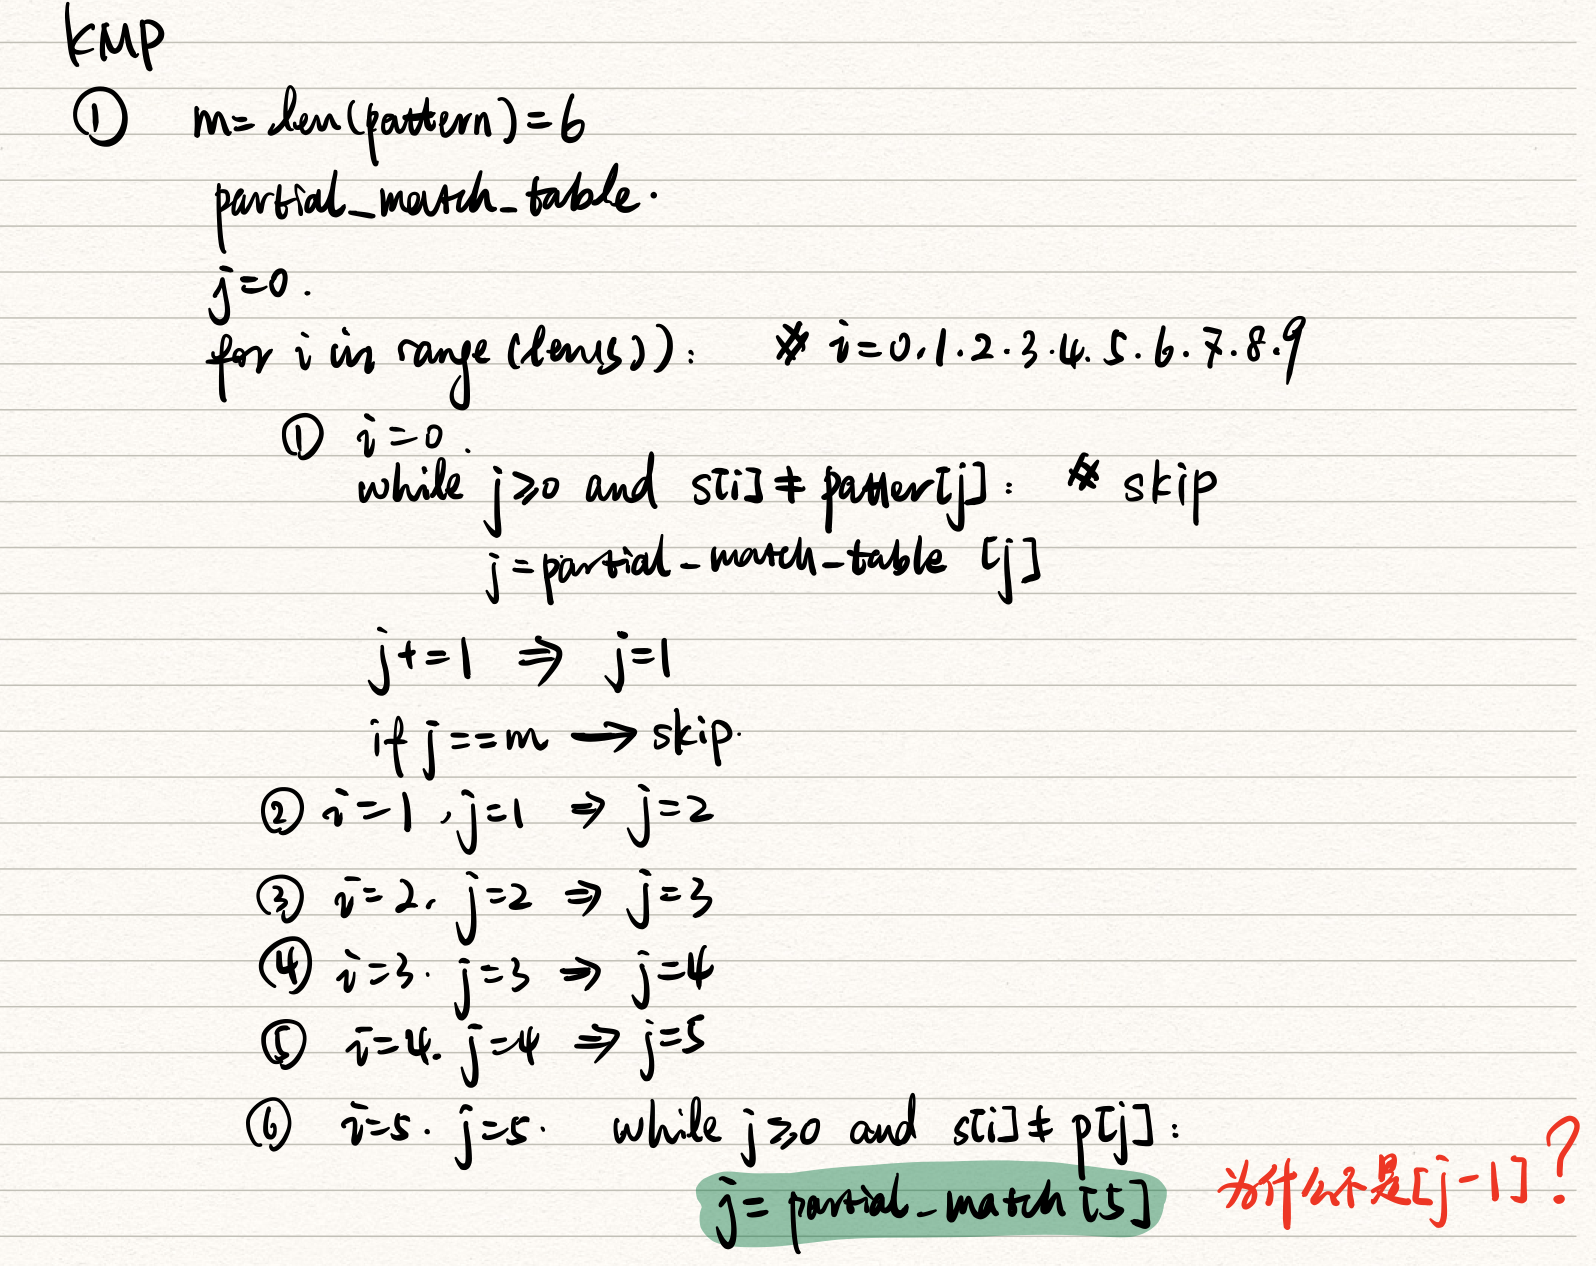 KMP
① m=len(pattern)=6
partial_match_table.
j=0.
for i in range(len(s)): # i=0.1.2.3.4.5.6.7.8.9
① i=0.
while j≥0 and s[i]≠patter[j]: # skip
j=partial_match_table [j]
j+=1 ⇒ j=1
if j==m → skip.
② i=1, j=1 ⇒ j=2
③ i=2, j=2 ⇒ j=3
④ i=3. j=3 ⇒ j=4
⑤ i=4. j=4 ⇒ j=5
⑥ i=5. j=5. while j≥0 and s[i]≠p[j]:
j=partial_match[5] 为什么不是[j-1]?